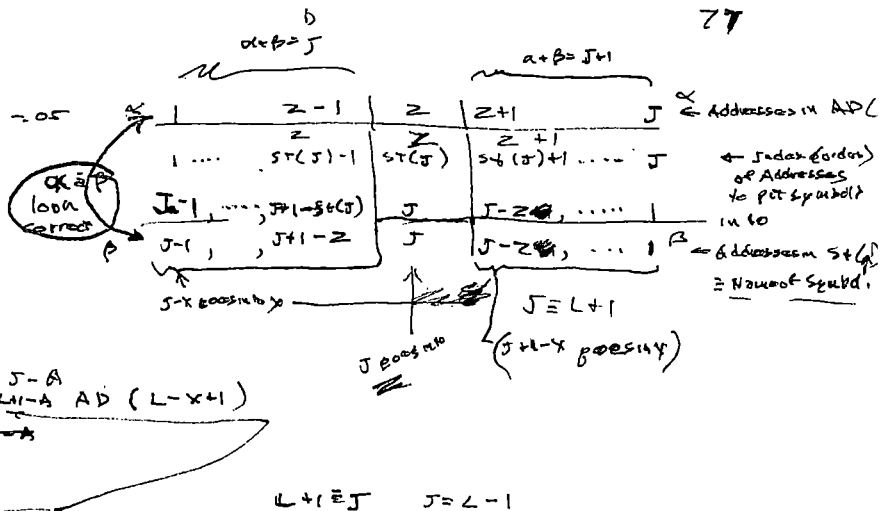 77
α+β=J
α+β=J+1
-.05 α 1 Z-1 Z Z+1 J α ← Addresses in AD(
Z Z Z+1
1 .... ST(J)-1 ST(J) St(J)+1 ..... J ← Index (order) of Addresses to put symbols into
α & β look correct
J-1, ....., J+1-St(J) J J-Z, ..... 1
β J-1, , J+1-Z J J-Z, ... 1 β ← Addresses in St( ≡ Name of Symbol.
J-X goes into X
J goes into Z
J ≡ L+1
(J+1-X goes in X)
J-A
L+1-A AD (L-X+1)
L+1≡J J=L-1